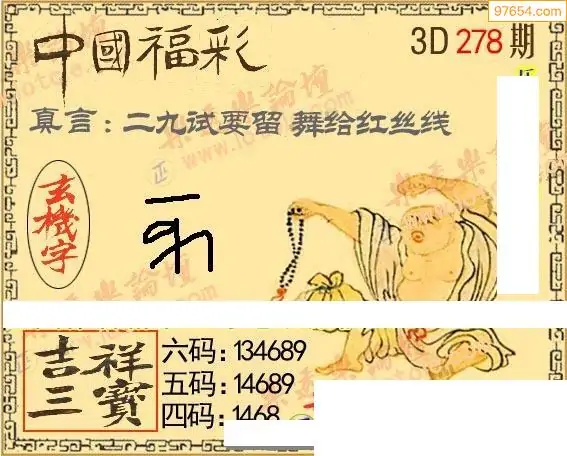 97654.com
中國福彩
3D 278 期
真言：二九试要留 舞给红丝线
玄機字
吉祥三寶
六码：134689
五码：14689
四码：1468